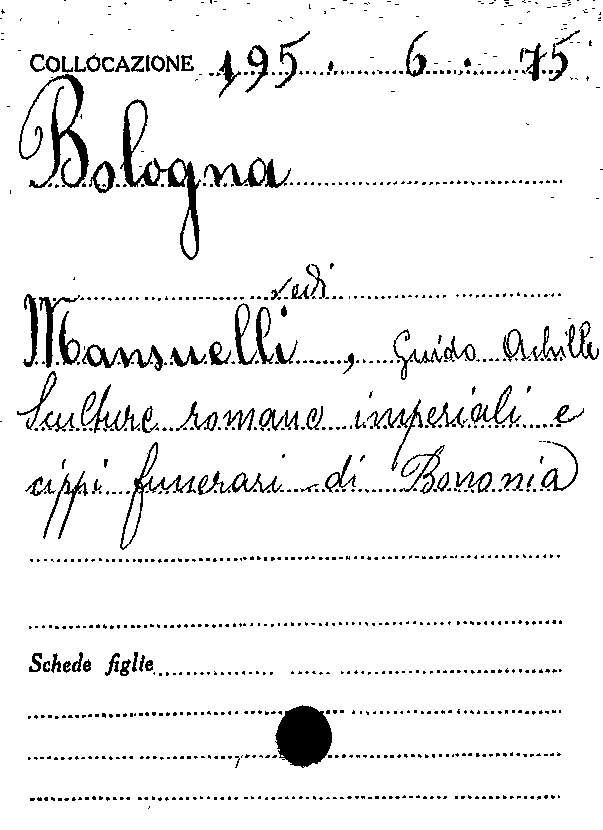 COLLOCAZIONE 195. 6. 75
Bologna
vedi
Mansuelli, Guido Achille
Sculture romane imperiali e
cippi funerari di Bononia
Schede figlie